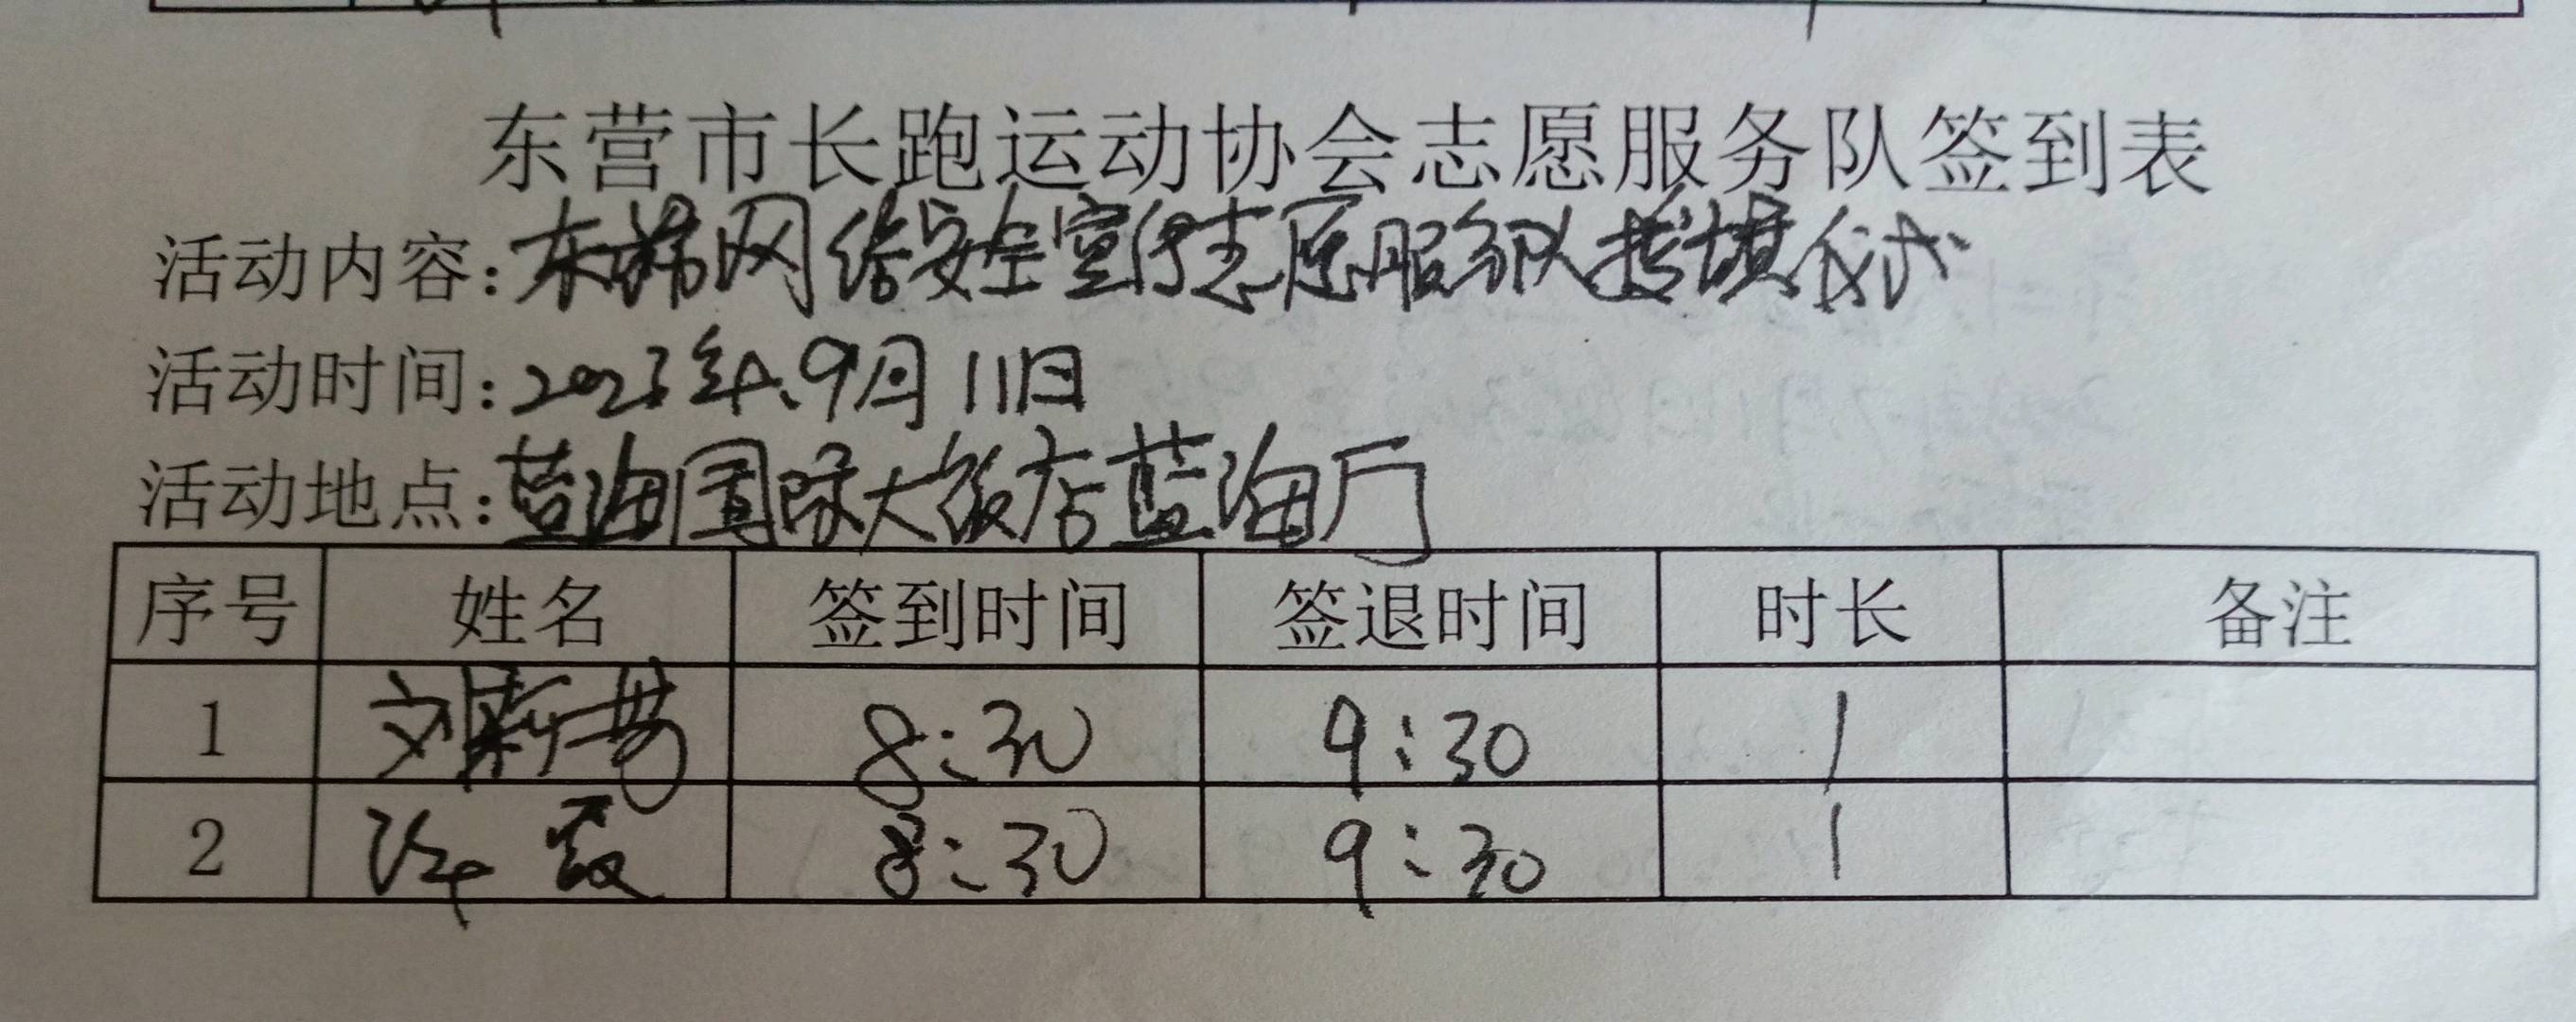 东营市长跑运动协会志愿服务队签到表
活动内容:东营网络安全宣传志愿服务队授旗仪式
活动时间:2023年.9月11日
活动地点:蓝海国际大饭店蓝海厅
序号 姓名 签到时间 签退时间 时长 备注
1 刘新 8:30 9:30 1
2 许霞 8:30 9:30 1